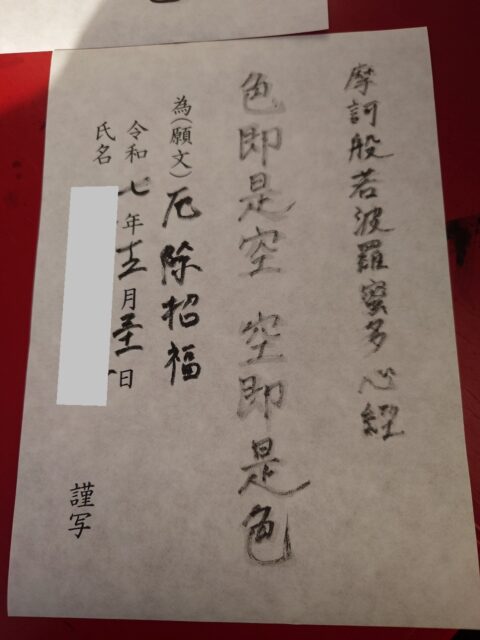 摩訶般若波羅蜜多心経
色即是空 空即是色
為(願文)厄除招福
令和七年 月 日
氏名
謹写